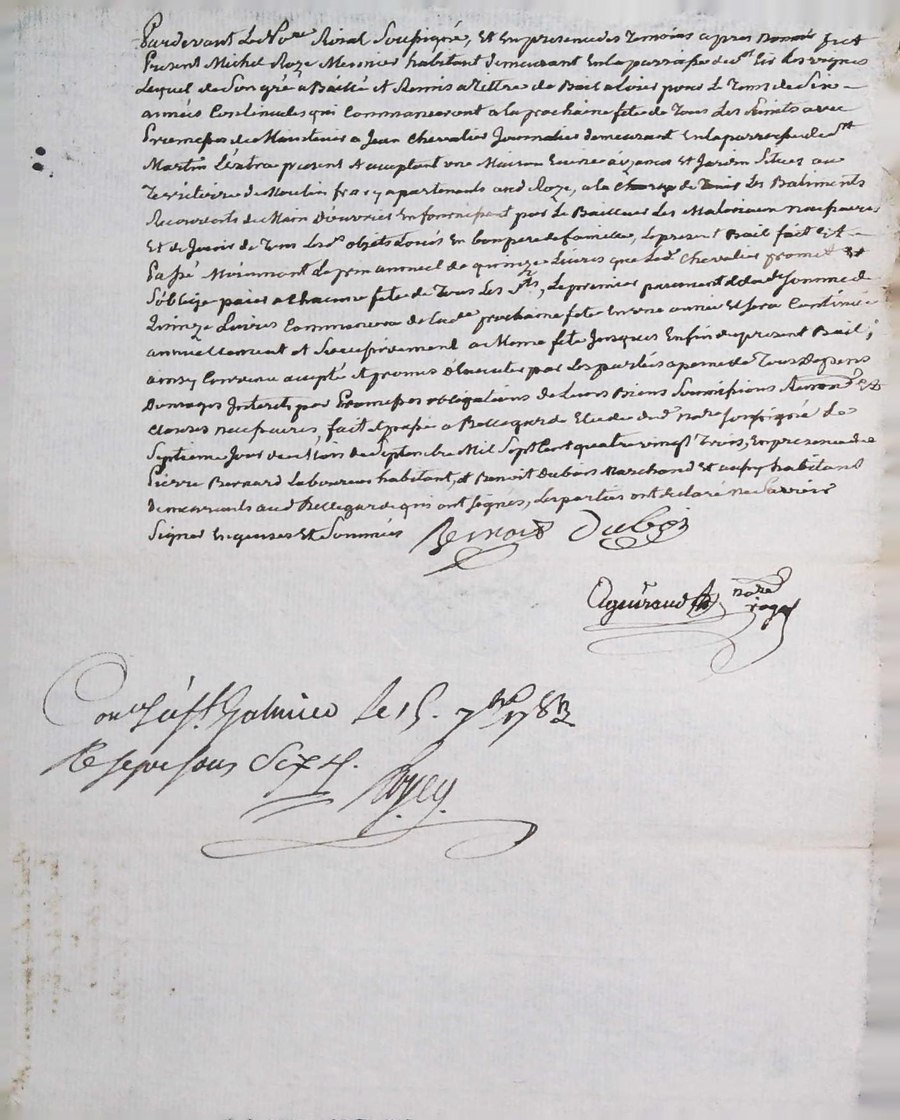 Pardevant Le No.re Roial Soussigné, Et En presence des Temoins apres només fut
Present Michel Roze Meunier habitant demeurant En la parroisse de st Cir les vignes
Lequel de Son gré a Baillé et Remis a Tittre de Bail a loier pour Le Tems de Six
années Continuelles qui Commanceront a la prochaine fête de Tous Les Saints avec
Promesse de Maintenir a Jean Chevalier Journalier demeurant En la parroisse de st
Martin Lestra present et acceptant une Maison Cuirée aizances Et Jardin Situés au
Territoire de Moulin franc apartenants aud Roze, a la Charge de Tenir Les Batiments
Recouvrants de Main D'ouvrier En fournissant par Le Bailleur Les Materiaux necessaires
Et de Jouir de Tous Lesd. objets Loués En bon pere de famille, Le present Bail fait et
Passé Moiennant Le prix annuel de quinze Livres que Led. Chevalier promet Et
S'oblige paier a Chacune fête de Tous Les Sts, Le premier paiement de lad. Somme de
Quinze Livres Commencera de lad.e prochaine fête En une année Et Sera Continué
annuellement et Successivement a Meme fête Jusques En fin du present Bail;
ainsy Convenu accepté Et promis D'executer par Les parties a peine de Tous Depens
Domages Interets par Promesses obligations de Leurs Biens Soumissions Renon.ons Et
Clauses necessaires, fait Et passé a Bellegarde Etude dud. No.re Soussigné Le
Septieme Jour du Mois de Septembre Mil Sept Cent quatre vingt Trois, En presence de
Pierre Bernard Laboureur habitant, et Benoit Dubois Marchand Et aussy habitant
demeurants aud Bellegarde qui ont Signés, Les parties ont declaré ne Savoir
Signer Enquises Et Sommées
Benoit Dubois
Aguiraud no.re royal
Con.lé à St Galmier Le 15. 7bre 1783
R. sept sous Six d.